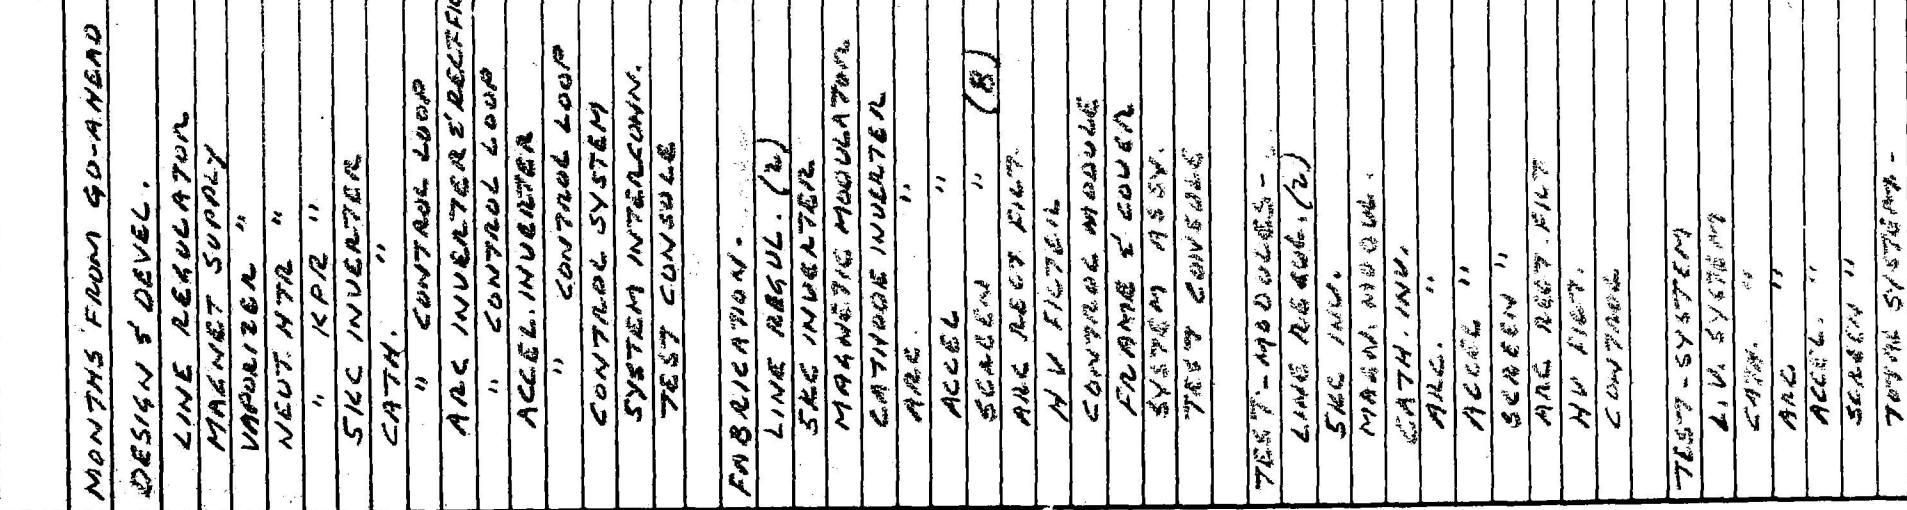 MONTHS FROM GO-AHEAD
DESIGN & DEVEL.
LINE REGULATOR
MAGNET SUPPLY
VAPORIZER "
NEUT. HTR "
" KPR "
5KC INVERTER
CATH. "
" CONTROL LOOP
ARC INVERTER & RECTFIC
" CONTROL LOOP
ACCEL. INVERTER
" CONTROL LOOP
CONTROL SYSTEM
SYSTEM INTERCONN.
TEST CONSOLE
FABRICATION.
LINE REGUL. (2)
5KC INVERTER
MAGNETIC MODULATOR
CATHODE INVERTER
ARC. "
ACCEL "
SCREEN " (8)
ARC RECT FILT.
HV FILTER
CONTROL MODULE
FRAME & COVER
SYSTEM ASSY.
TEST CONSOLE
TEST - MODULES -
LINE REGUL. (2)
5KC INV.
MAGN. MODUL.
CATH. INV.
ARC. "
ACCEL "
SCREEN "
ARC RECT. FILT
HV FILT.
CONTROL
TEST - SYSTEM
L.V. SYSTEM
CATH. "
ARC "
ACCEL. "
SCREEN "
TOTAL SYSTEM -